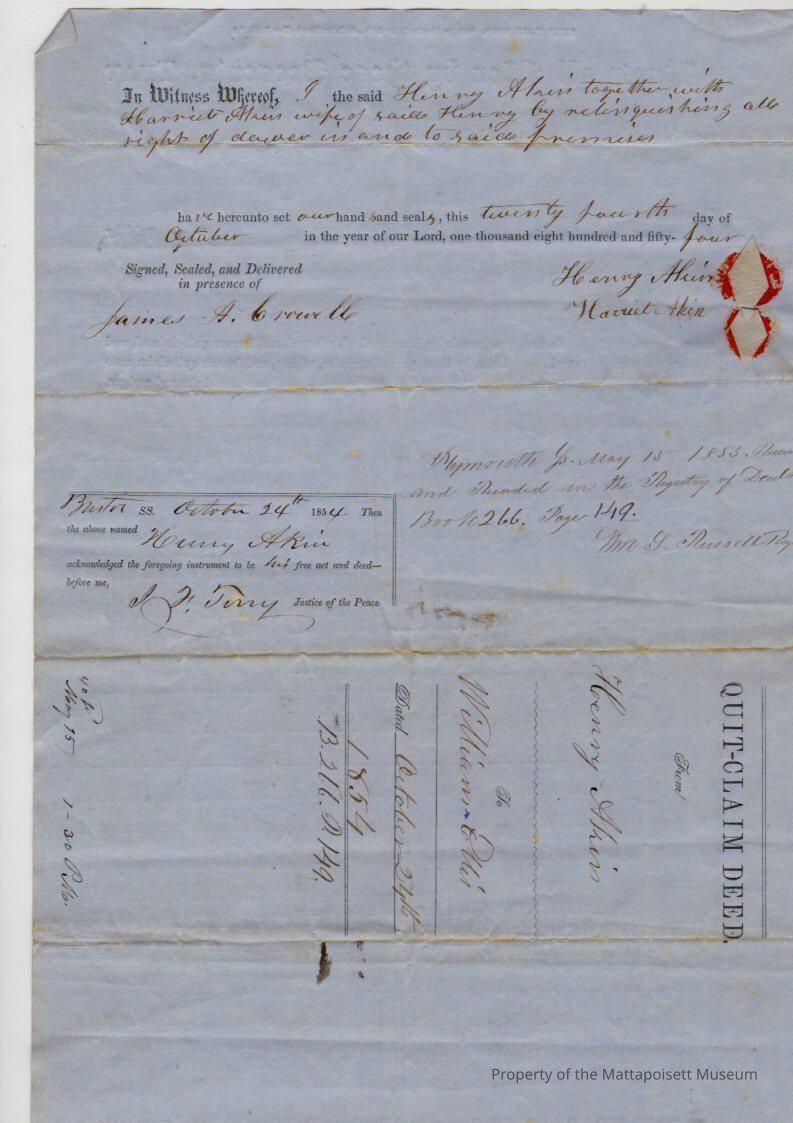 In Witness Whereof, I the said Henry Akin together with
Harriet Akin wife of said Henry by relinquishing all
right of dower in and to said premises
have hereunto set our hand sand seals, this twenty fourth day of
October in the year of our Lord, one thousand eight hundred and fifty-four
Signed, Sealed, and Delivered
in presence of
Henry Akin
Harriet Akin
James A. Crowell
Plymouth Ss. May 15 1855.
and Recorded in the Registry of Deeds
Book 266. Page 149.
Wm S. Russell
Bristol SS. October 24th 1854 Then
the above named
Henry Akin
acknowledged the foregoing instrument to be his free act and deed—
before me,
Terry Justice of the Peace
QUIT-CLAIM DEED.
From
Henry Akin
To
William Ellis
Dated October 24th
1854
B. 266. P. 149.
May 15 1-30 P.M.
Property of the Mattapoisett Museum